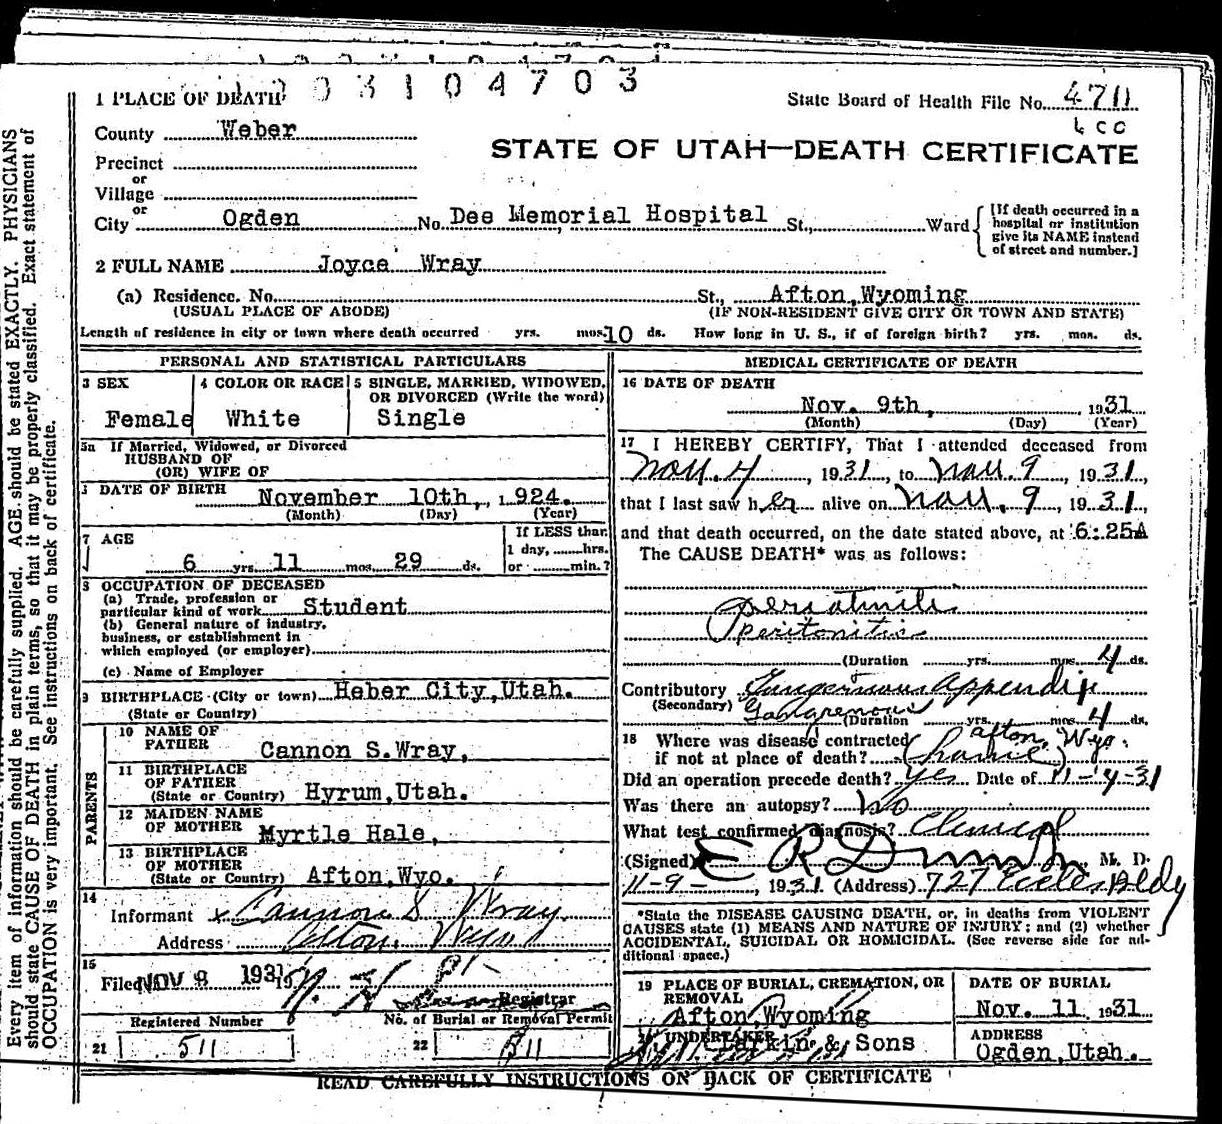 1 PLACE OF DEATH
0 3 1 0 4 7 0 3
State Board of Health File No. 4711
County Weber
STATE OF UTAH—DEATH CERTIFICATE
Precinct
or
Village
or
City Ogden No. Dee Memorial Hospital St., Ward
[If death occurred in a
hospital or institution
give its NAME instead
of street and number.]
2 FULL NAME Joyce Wray
(a) Residence. No. St., Afton,Wyoming
(USUAL PLACE OF ABODE) (IF NON-RESIDENT GIVE CITY OR TOWN AND STATE)
Length of residence in city or town where death occurred yrs. mos. 10 ds. How long in U. S., if of foreign birth? yrs. mos. ds.
PERSONAL AND STATISTICAL PARTICULARS
3 SEX
Female
4 COLOR OR RACE
White
5 SINGLE, MARRIED, WIDOWED,
OR DIVORCED (Write the word)
Single
5a If Married, Widowed, or Divorced
HUSBAND OF
(OR) WIFE OF
DATE OF BIRTH November 10th, 1924.
(Month) (Day) (Year)
7 AGE
6 yrs. 11 mos. 29 ds.
If LESS than
1 day, hrs.
or min.?
8 OCCUPATION OF DECEASED
(a) Trade, profession or
particular kind of work Student
(b) General nature of industry,
business, or establishment in
which employed (or employer)
(c) Name of Employer
9 BIRTHPLACE (City or town) Heber City,Utah.
(State or Country)
PARENTS
10 NAME OF
FATHER Cannon S.Wray,
11 BIRTHPLACE
OF FATHER
(State or Country) Hyrum,Utah.
12 MAIDEN NAME
OF MOTHER Myrtle Hale,
13 BIRTHPLACE
OF MOTHER
(State or Country) Afton,Wyo.
14
Informant x Cannon S Wray
Address Afton Wyo
15
Filed NOV 8 1931
Registrar
Registered Number
21 511
No. of Burial or Removal Permit
22 511
MEDICAL CERTIFICATE OF DEATH
16 DATE OF DEATH
Nov. 9th, 1931
(Month) (Day) (Year)
17 I HEREBY CERTIFY, That I attended deceased from
Nov. 4, 1931, to Nov. 9, 1931,
that I last saw her alive on Nov. 9, 1931,
and that death occurred, on the date stated above, at 6:25A
The CAUSE DEATH* was as follows:
peritonitis
(Duration yrs. mos. 4 ds.
Contributory Gangrenous Appendix
(Secondary) Gangrenous
(Duration yrs. mos. 4 ds.
18 Where was disease contracted Afton, Wyo.
if not at place of death? (home)
Did an operation precede death? Yes Date of 11-4-31
Was there an autopsy? No
What test confirmed diagnosis? Clinical
(Signed) E R M. D.
11-9-, 1931 (Address) 727 Eccles Bldg
*State the DISEASE CAUSING DEATH, or, in deaths from VIOLENT
CAUSES state (1) MEANS AND NATURE OF INJURY; and (2) whether
ACCIDENTAL, SUICIDAL OR HOMICIDAL. (See reverse side for ad-
ditional space.)
19 PLACE OF BURIAL, CREMATION, OR
REMOVAL
Afton,Wyoming
DATE OF BURIAL
Nov. 11 1931
UNDERTAKER
Larkin & Sons
ADDRESS
Ogden,Utah.
READ CAREFULLY INSTRUCTIONS ON BACK OF CERTIFICATE
Every item of information should be carefully supplied. AGE should be stated EXACTLY. PHYSICIANS
should state CAUSE OF DEATH in plain terms, so that it may be properly classified. Exact statement of
OCCUPATION is very important. See instructions on back of certificate.